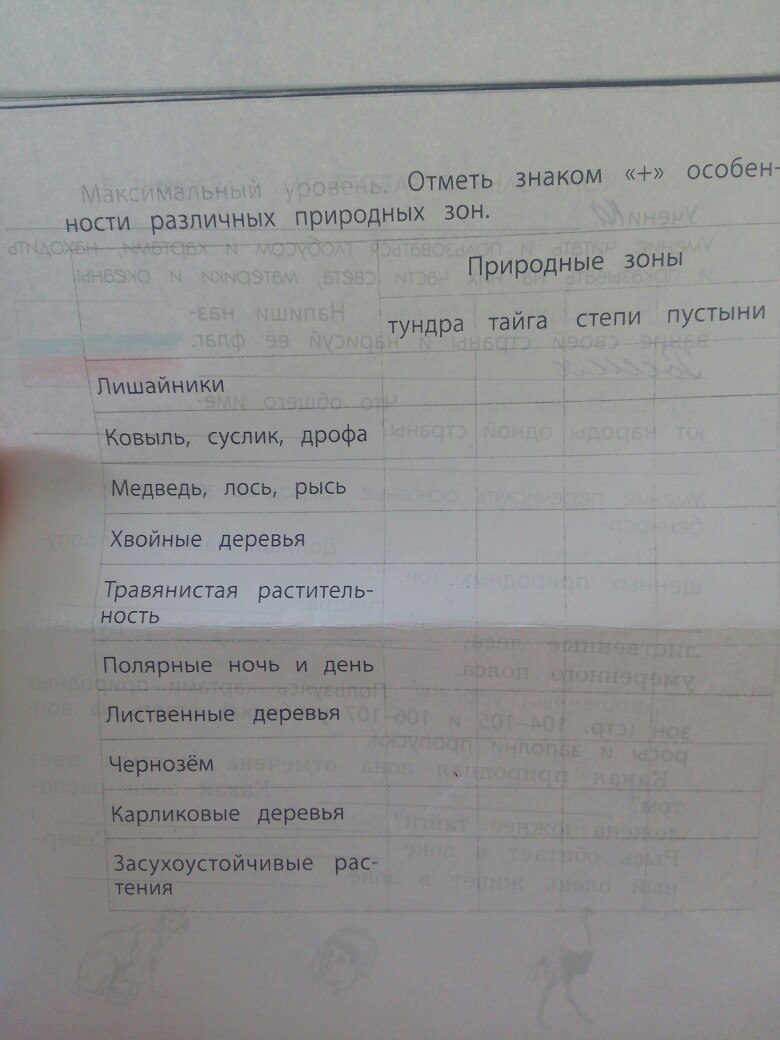 Максимальный уровень. Отметь знаком «+» особен-
ности различных природных зон.
Природные зоны
тундра тайга степи пустыни
Лишайники
Ковыль, суслик, дрофа
Медведь, лось, рысь
Хвойные деревья
Травянистая раститель-
ность
Полярные ночь и день
Лиственные деревья
Чернозём
Карликовые деревья
Засухоустойчивые рас-
тения